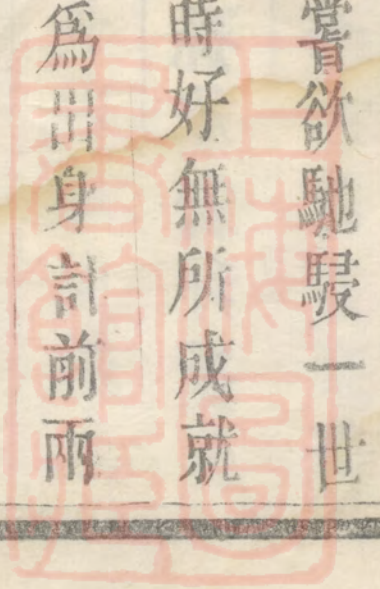 嘗欲馳騁一世
時好無所成就
爲出身計前兩